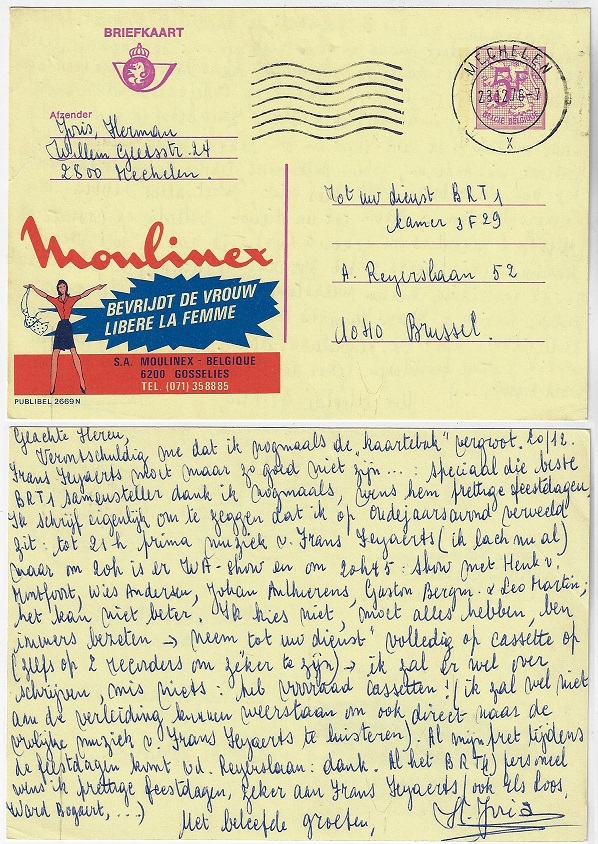 BRIEFKAART
MECHELEN
23.12.76-7
5F
BELGIE BELGIQUE
X
Afzender
Joris, Herman
Willem Geetsstr. 24
2800 Mechelen.
Tot uw dienst BRT1
Kamer 5F29
A. Reyerslaan 52
1040 Brussel.
Moulinex
BEVRIJDT DE VROUW
LIBERE LA FEMME
S.A. MOULINEX - BELGIQUE
6200 GOSSELIES
TEL. (071) 358885
PUBLIBEL 2669 N
Geachte Heren, 20/12.
Verontschuldig me dat ik nogmaals de "kaartebak" vergroot.
Frans Feyaerts moet maar zo goed niet zijn ... : speciaal die beste
BRT1 samensteller dank ik nogmaals, wens hem prettige feestdagen.
Ik schrijf eigenlijk om te zeggen dat ik op Oudejaarsavond verveeld
zit: tot 21h prima muziek v. Frans Feyaerts (ik lach nu al)
maar om 20h is er -show en om 20h45: show met Henk v.
Montfoort, Wies Andersen, Johan Anthierens, Gaston Bergm. & Leo Martin;
het kan niet beter. Ik kies niet, moet alles hebben, ben
immers bezeten → neem "tot uw dienst" volledig op cassette op
(zelfs op 2 recorders om zeker te zijn) → ik zal er wel over
schrijven, mis niets: heb voorraad cassetten! (ik zal wel niet
aan de verleiding kunnen weerstaan om ook direct naar de
vrolijke muziek v. Frans Feyaerts te luisteren). Al mijn pret tijdens
de feestdagen komt v.d. Reyerslaan: dank. Al het BRT(1) personeel
wens ik prettige feestdagen, zeker aan Frans Feyaerts (ook Els Loos,
Ward Bogaert, ...)
Met beleefde groeten,
H. Joris